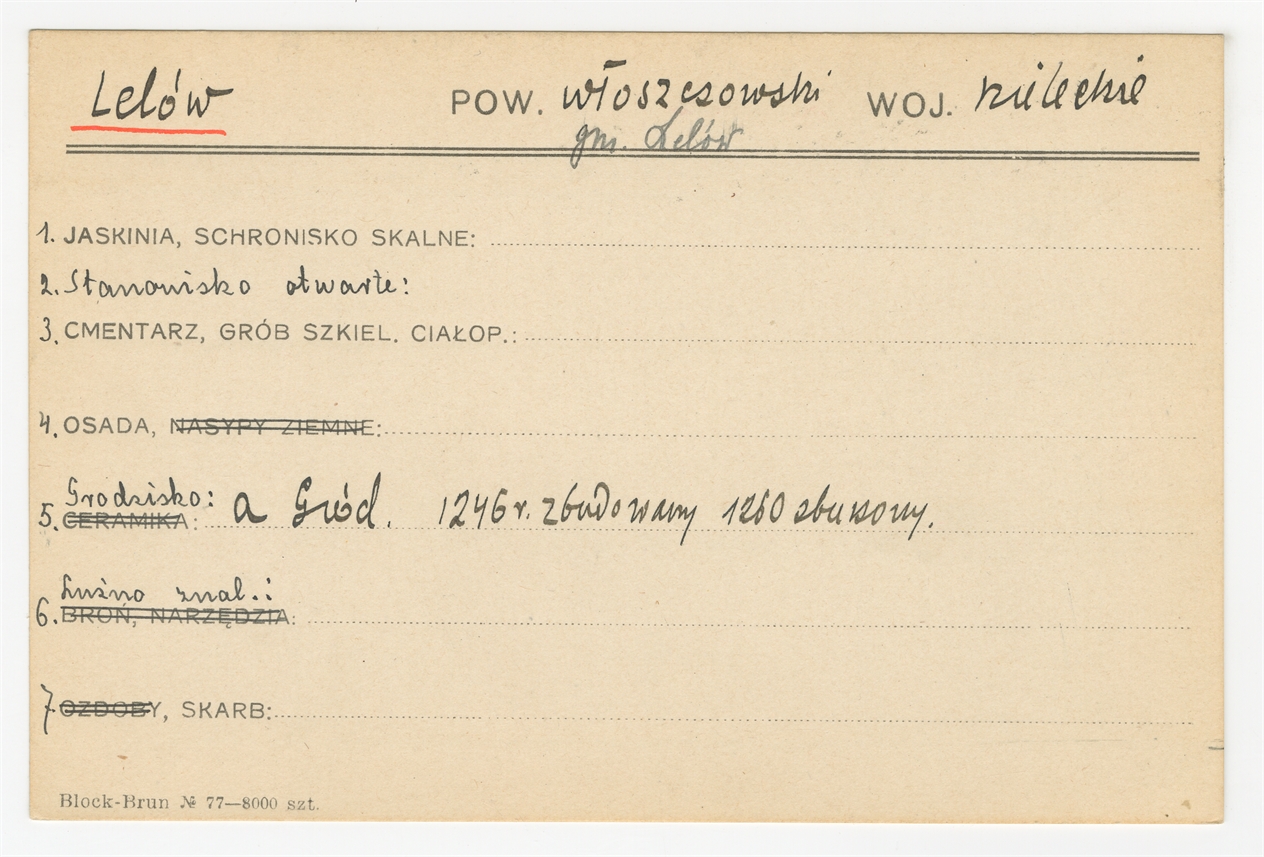 Lelów POW. włoszczowski WOJ. kieleckie
gm. Lelów
1. JASKINIA, SCHRONISKO SKALNE:
2. Stanowisko otwarte:
3. CMENTARZ, GRÓB SZKIEL. CIAŁOP.:
4. OSADA, NASYPY ZIEMNE:
Grodzisko: a Gród. 1246 r. zbudowany 1260 zburzony.
5. CERAMIKA:
Luźno znal.:
6. BROŃ, NARZĘDZIA:
7. OZDOBY, SKARB:
Block-Brun № 77—8000 szt.